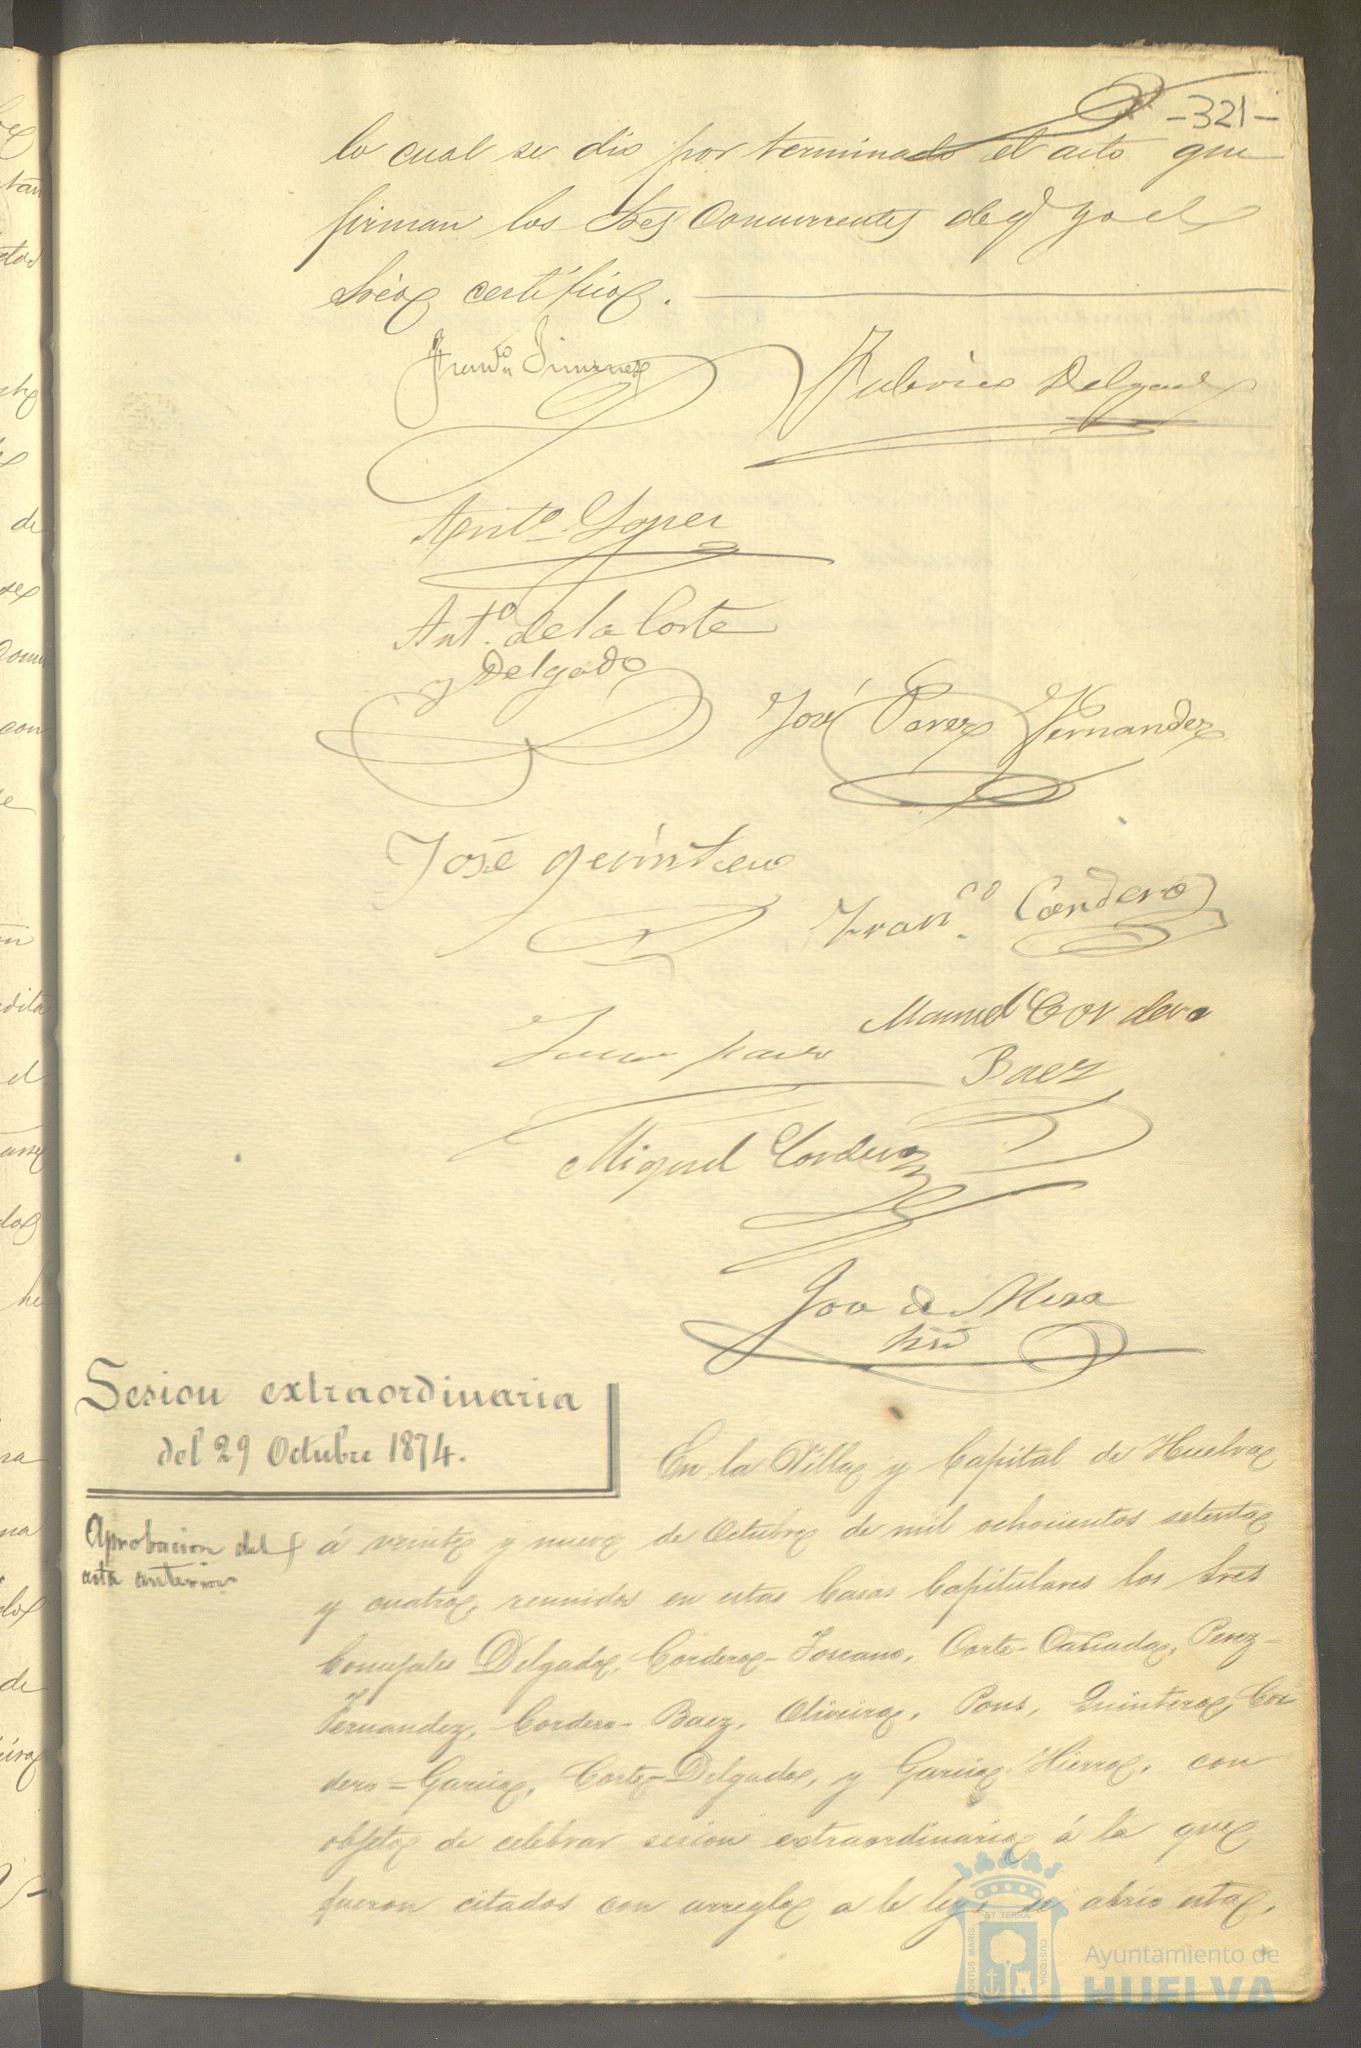 -321-
lo cual se dio por terminado el acto que
firman los Sres Concurrentes de q yo el
Srio certifico.
Franco Jimenez
Federico Delgado
Anto Lopez
Anto. de la Corte
y Delgado
José Perez Fernandez
José Quintero
Franco. Cordero
Manuel Cordero
Baez
Miguel Cordero
de Mesa
Sesion extraordinaria
del 29 Octubre 1874.
En la Villa y Capital de Huelva
Aprobacion del
acta anterior
á veinte y nueve de Octubre de mil ochocientos setenta
y cuatro, reunidos en estas Casas Capitulares los Sres
Concejales Delgado, Cordero-Toscano, Corte-Calzada, Perez-
Fernandez, Cordero-Baez, Oliveira, Pons, Quintero, Cor
dero=Garcia, Corte-Delgado, y Garcia Hierro, con
objeto de celebrar sesion extraordinaria á la que
fueron citados con arreglo a la ley, se abrio esta,
PORTUS MARIS
ET TERRAE
CUSTODIA
Ayuntamiento de
HUELVA